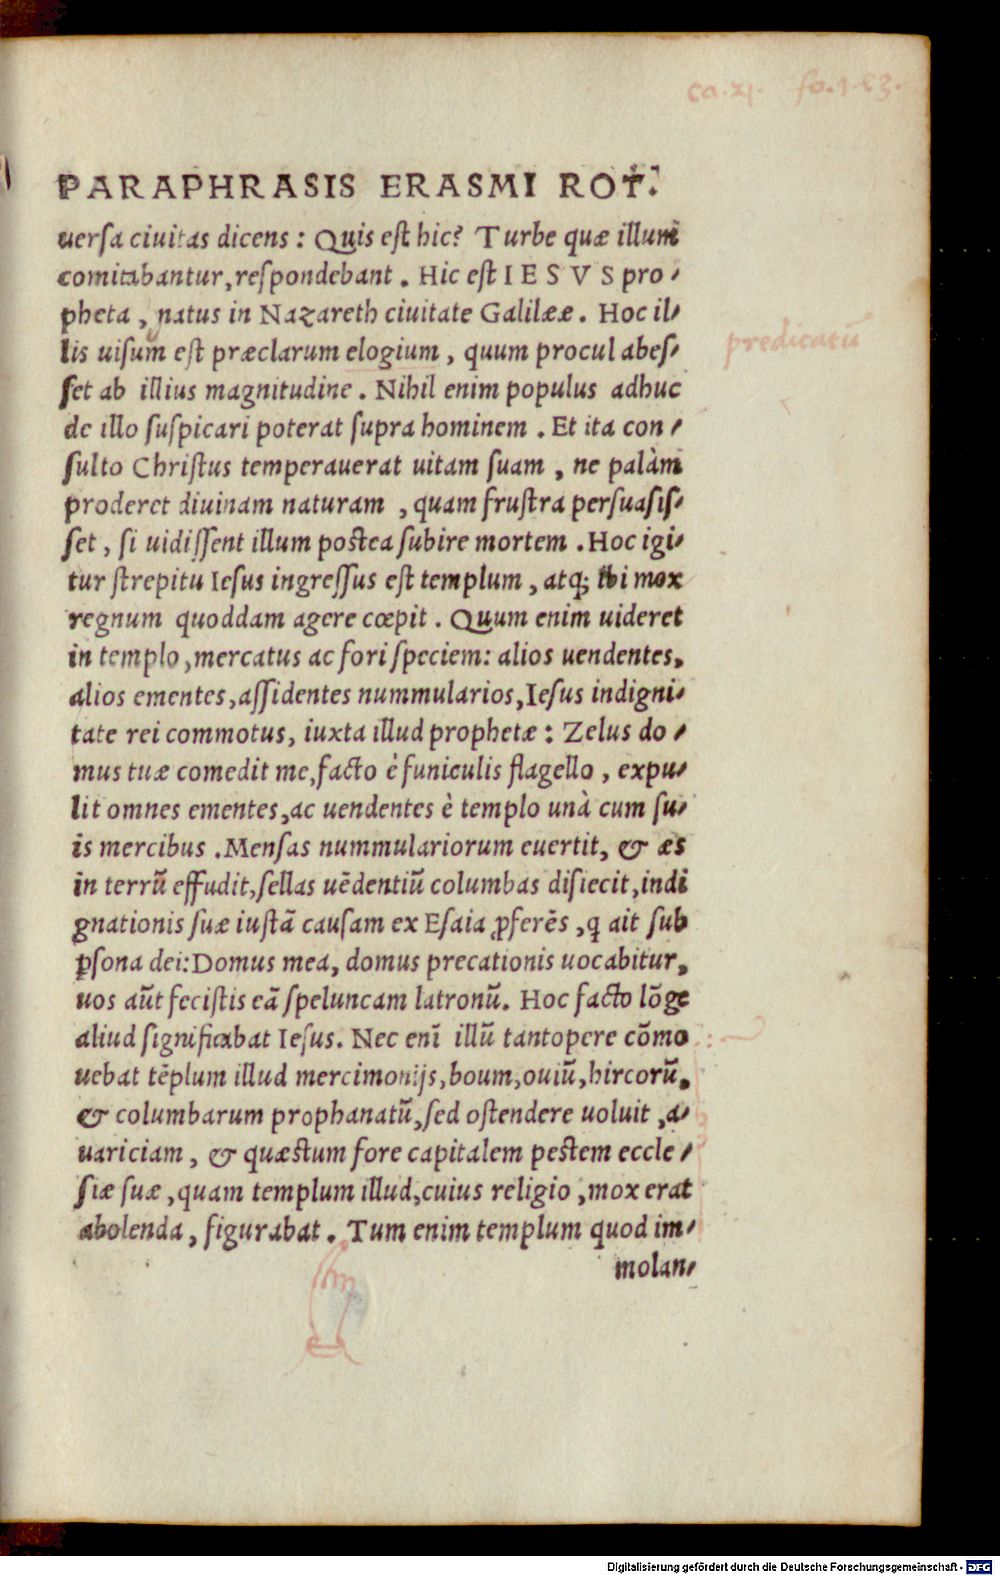 ca. xj. fo. 1. 53.
PARAPHRASIS ERASMI ROT.
uersa ciuitas dicens: Quis est hic? Turbe quæ illum
comitabantur, respondebant. Hic est IESVS pro-
pheta, natus in Nazareth ciuitate Galilææ. Hoc il-
lis uisum est præclarum elogium, quum procul abes-
set ab illius magnitudine. Nihil enim populus adhuc
de illo suspicari poterat supra hominem. Et ita con-
sulto Christus temperauerat uitam suam, ne palàm
proderet diuinam naturam, quam frustra persuasis-
set, si uidissent illum postea subire mortem. Hoc igi-
tur strepitu Iesus ingressus est templum, atq; ibi mox
regnum quoddam agere cœpit. Quum enim uideret
in templo, mercatus ac fori speciem: alios uendentes,
alios ementes, assidentes nummularios, Iesus indigni-
tate rei commotus, iuxta illud prophetæ: Zelus do-
mus tuæ comedit me, facto è funiculis flagello, expu-
lit omnes ementes, ac uendentes è templo unà cum su-
is mercibus. Mensas nummulariorum euertit, & æs
in terrũ effudit, sellas uẽdentiũ columbas disiecit, indi
gnationis suæ iustã causam ex Esaia ꝓferẽs, q̃ ait sub
ꝑsona dei: Domus mea, domus precationis uocabitur,
uos aũt fecistis eã speluncam latronũ. Hoc facto lõge
aliud significabat Iesus. Nec enĩ illũ tantopere cõmo
uebat tẽplum illud mercimonijs, boum, ouiũ, hircorũ,
& columbarum prophanatũ, sed ostendere uoluit, a-
uariciam, & quæstum fore capitalem pestem eccle-
siæ suæ, quam templum illud, cuius religio, mox erat
abolenda, figurabat. Tum enim templum quod im-
molan-
predicatũ
Digitalisierung gefördert durch die Deutsche Forschungsgemeinschaft - DFG